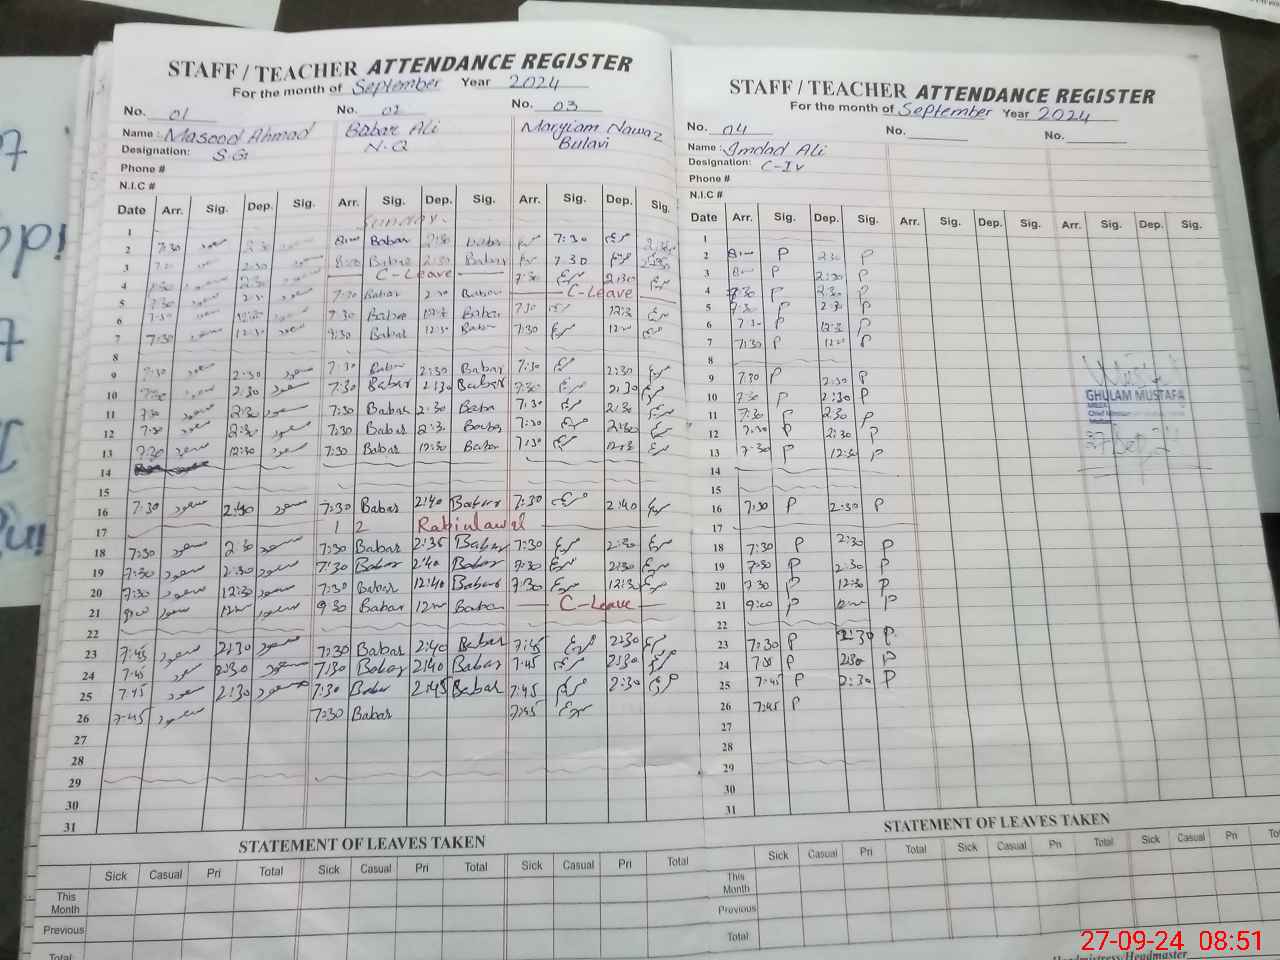 STAFF / TEACHER ATTENDANCE REGISTER
For the month of September Year 2024
No. 01 No. 02 No. 03
Name : Masood Ahmad Babar Ali Maryiam Nawaz
Designation: S.G N.Q Bulavi
Phone #
N.I.C #
Date Arr. Sig. Dep. Sig. Arr. Sig. Dep. Sig. Arr. Sig. Dep. Sig.
1 Sunday.
2 7:30 مسعود 2:30 مسعود 8:00 Babar 2:30 babar مریم 7:30 مریم 2:30
3 مسعود 2:30 مسعود 8:00 Babar 2:30 Babar 7:30 مریم 2:30
4 7:30 مسعود 2:30 مسعود C-Leave 7:30 مریم 2:30 مریم
5 7:30 مسعود 2:30 مسعود 7:30 Babar 2:30 Babar C-Leave
6 7:30 مسعود 12:30 مسعود 7:30 Babar 12:30 Babar 7:30 مریم 12:30 مریم
7 7:30 مسعود 12:30 مسعود 7:30 Babar 12:30 Babar 7:30 مریم 12:00 مریم
8
9 7:30 مسعود 2:30 مسعود 7:30 Babar 2:30 Babar 7:30 مریم 2:30 مریم
10 7:30 مسعود 2:30 مسعود 7:30 Babar 2:30 Babar 7:30 مریم 2:30 مریم
11 7:30 مسعود 2:30 مسعود 7:30 Babar 2:30 Baba 7:30 مریم 2:30 مریم
12 7:30 مسعود 2:30 مسعود 7:30 Babar 2:30 Babar 7:30 مریم 2:30 مریم
13 7:30 مسعود 12:30 مسعود 7:30 Babar 12:30 Babar 7:30 مریم 12:30 مریم
14
15
16 7:30 مسعود 2:40 مسعود 7:30 Babar 2:40 Babar 7:30 مریم 2:40 مریم
17 12 Rabiulawal
18 7:30 مسعود 2:30 مسعود 7:30 Babar 2:35 Babar 7:30 مریم 2:30 مریم
19 7:30 مسعود 2:30 مسعود 7:30 Babar 2:40 Babar 7:30 مریم 2:30 مریم
20 7:30 مسعود 12:30 مسعود 7:30 Babar 12:40 Babar 7:30 مریم 12:30 مریم
21 9:00 مسعود 12:00 مسعود 9:30 Babar 12:00 Babar C-Leave
22
23 7:45 مسعود 2:30 مسعود 7:30 Babar 2:40 Babar 7:45 مریم 2:30 مریم
24 7:45 مسعود 2:30 مسعود 7:30 Babar 2:40 Babar 7:45 مریم 2:30 مریم
25 7:45 مسعود 2:30 مسعود 7:30 Babar 2:45 Babar 7:45 مریم 2:30 مریم
26 7:45 مسعود 7:30 Babar 7:45 مریم
27
28
29
30
31
STATEMENT OF LEAVES TAKEN
Sick Casual Pri Total Sick Casual Pri Total Sick Casual Pri Total
This Month
Previous
Total:
STAFF / TEACHER ATTENDANCE REGISTER
For the month of September Year 2024
No. 04 No. No.
Name : Imdad Ali
Designation: C-Iv
Phone #
N.I.C #
Date Arr. Sig. Dep. Sig. Arr. Sig. Dep. Sig. Arr. Sig. Dep. Sig.
1
2 8:00 P 2:30 P
3 8:00 P 2:30 P
4 7:30 P 2:30 P
5 7:30 P 2:30 P
6 7:30 P 12:30 P
7 7:30 P 12:00 P
8
9 7:30 P 2:30 P
10 7:30 P 2:30 P
11 7:30 P 2:30 P
12 7:30 P 2:30 P
13 7:30 P 12:30 P
14
15
16 7:30 P 2:30 P
17
18 7:30 P 2:30 P
19 7:30 P 2:30 P
20 7:30 P 12:30 P
21 9:00 P P
22
23 7:30 P 2:30 P
24 7:30 P 2:30 P
25 7:45 P 2:30 P
26 7:45 P
27
28
29
30
31
GHULAM MUSTAFA
STATEMENT OF LEAVES TAKEN
Sick Casual Pri Total Sick Casual Pri Total Sick Casual Pri
This Month
Previous
Total
Headmistress/Headmaster
27-09-24 08:51